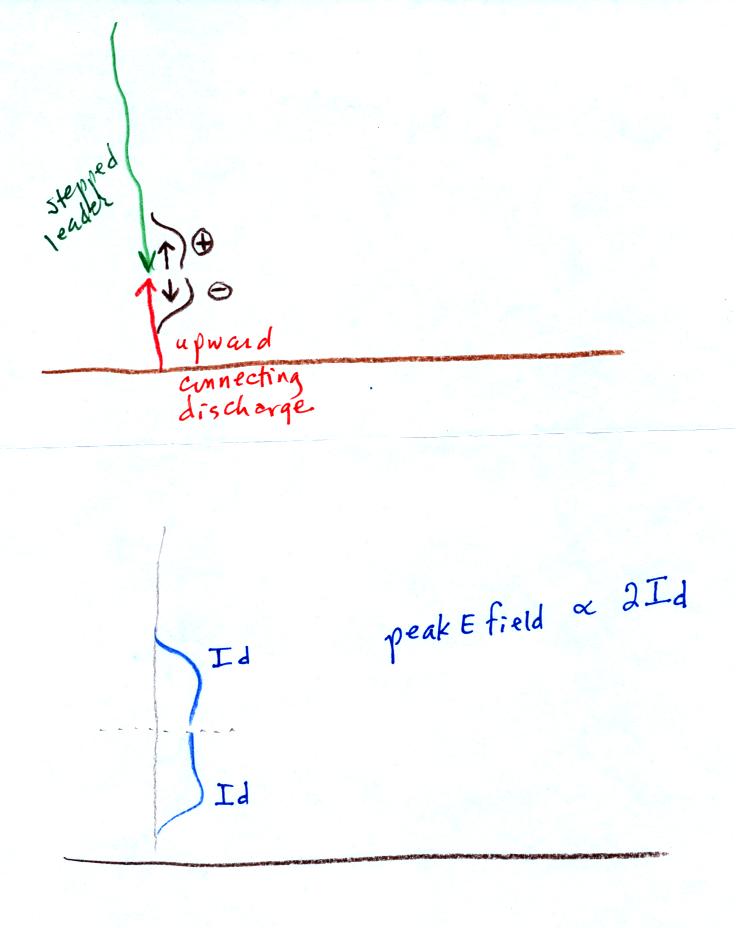 stepped
leader
⊕
⊖
upward
connecting
discharge
Id
peak E field ∝ 2Id
Id